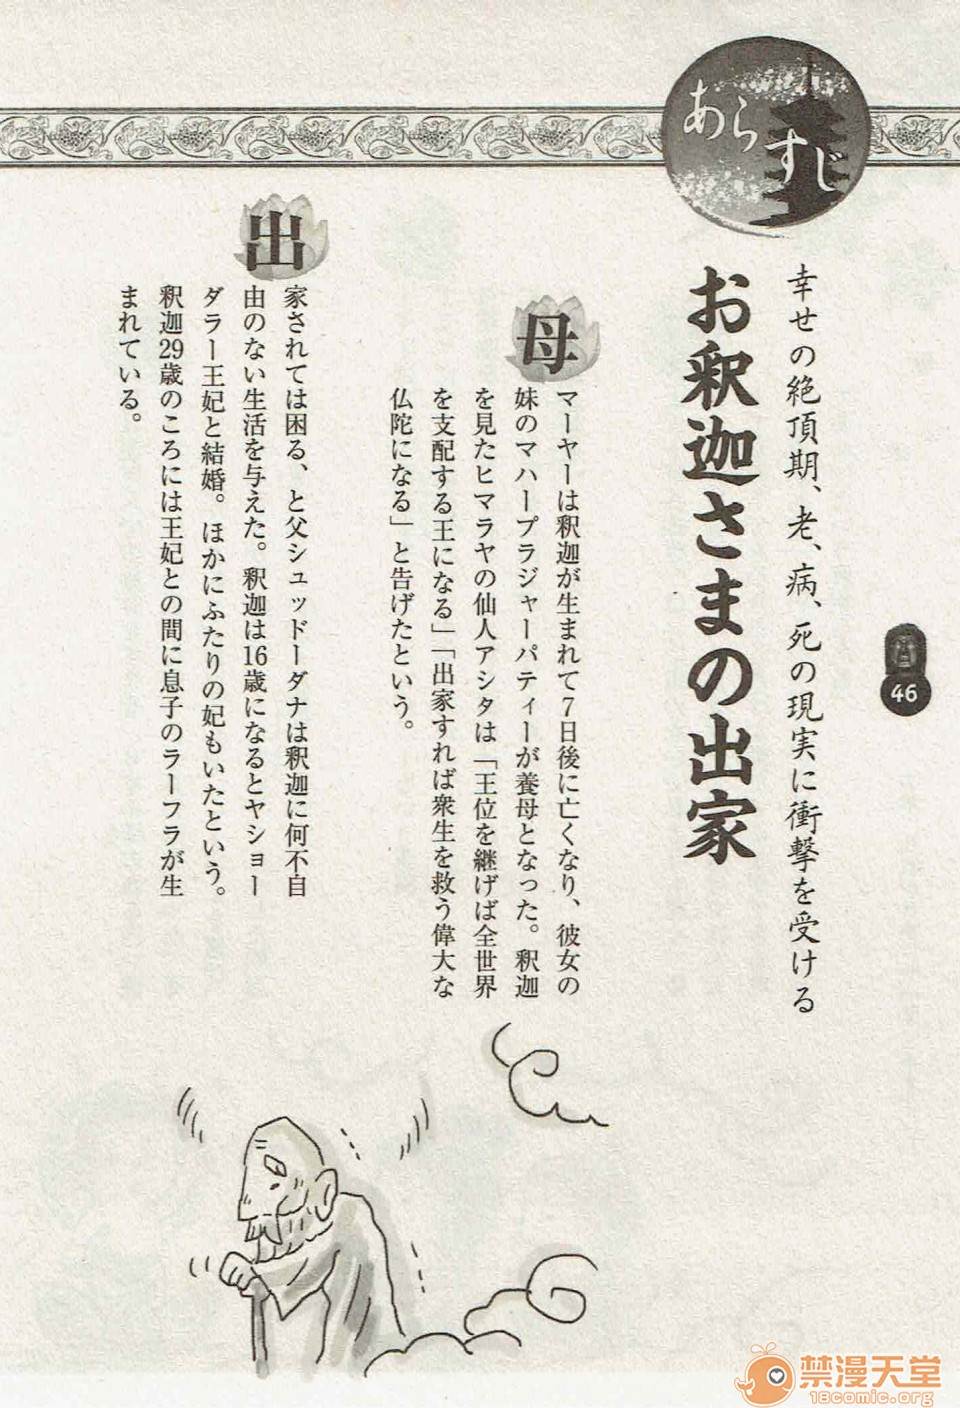 あらすじ
幸せの絶頂期、老、病、死の現実に衝撃を受ける
お釈迦さまの出家
46
母
マーヤーは釈迦が生まれて7日後に亡くなり、彼女の
妹のマハープラジャーパティーが養母となった。釈迦
を見たヒマラヤの仙人アシタは「王位を継げば全世界
を支配する王になる」「出家すれば衆生を救う偉大な
仏陀になる」と告げたという。
出
家されては困る、と父シュッドーダナは釈迦に何不自
由のない生活を与えた。釈迦は16歳になるとヤショー
ダラー王妃と結婚。ほかにふたりの妃もいたという。
釈迦29歳のころには王妃との間に息子のラーフラが生
まれている。
禁漫天堂
18comic.org